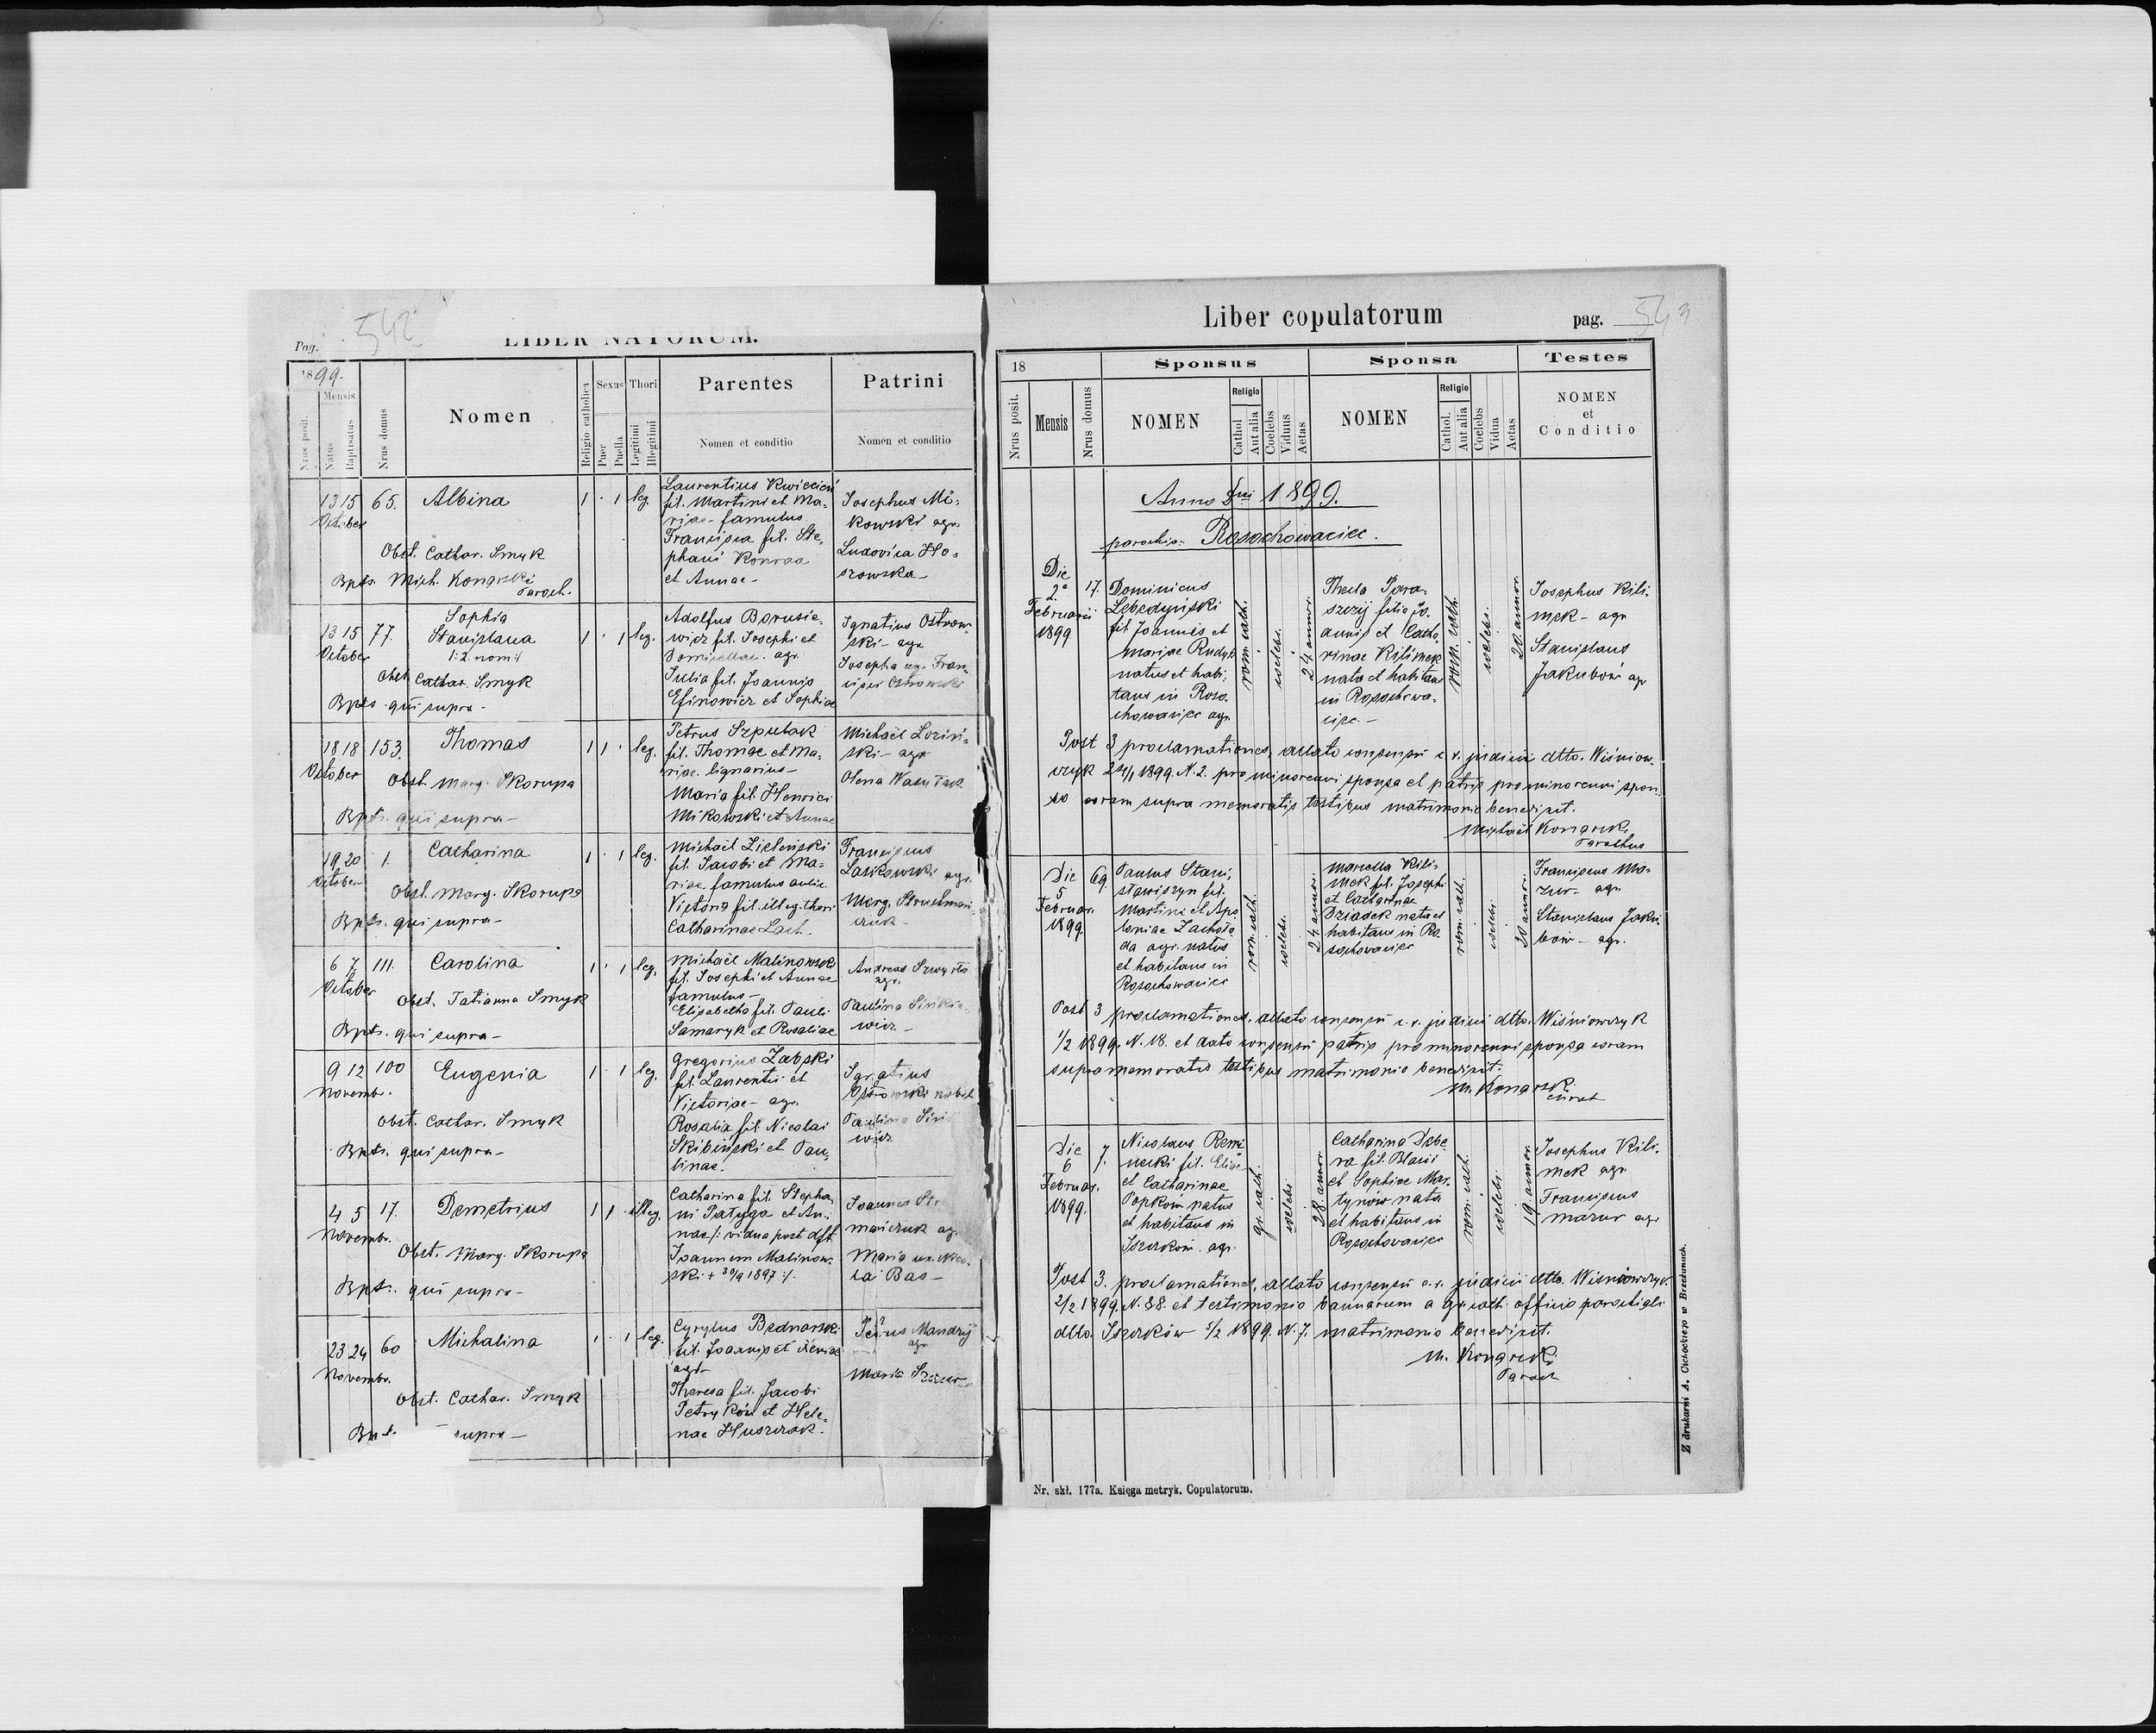 Pag. 542
LIBER NATORUM.
1899.
Nrus posit.
Mensis
Natus
Baptisatus
Nrus domus
Nomen
Religio catholica
Sexus
Puer
Puella
Thori
Legitimi
Illegitimi
Parentes
Nomen et conditio
Patrini
Nomen et conditio
13 15
October
65.
Albina
Obst. Cathar. Smyk
Bpts. Mich. Konarski
Paroch.
1 · 1 leg.
Laurentius Kwiecień
fil. Martini et Ma-
riae - famulus
Francisca fil. Ste-
phani
et Annae -
Josephus Mi-
kowski agr.
Ludovica Ho-
szowska -
13 15
October
77.
Sophia
Stanislaua
/: 2. nom :/
Obst. Cathar. Smyk
Bpts. qui supra -
1 · 1 leg.
Adolfus Borusie-
wicz fil. Josephi et
Domicellae. agr.
Julia fil. Joannis
Efinowicz et Sophiae
Ignatius Ostrow-
ski - agr.
Josepha ux. Fran-
cisci Ostrowski
18 18
October
153.
Thomas
Obst. Marg. Skorupa
Bpts. qui supra -
1 1 · leg.
Petrus Szpulak
fil. Thomae et Ma-
riae. lignarius -
Maria fil. Henrici
Mikowski et Annae
Michaël Loziń-
ski - agr
Olena
19 20
October
1.
Catharina
Obst. Marg. Skorupa
Bpts. qui supra -
1 · 1 leg.
Michaël Zieleński
fil. Jacobi et Ma-
riae famulus aulic
Victoria fil. illeg. thori
Catharinae Lach.
Franciscus
Laskowski agr.
Marg.
czuk -
6 7
October
111.
Carolina
Obst. Tatianna Smyk
Bpts. qui supra -
1 · 1 leg.
Michaël Malinowski
fil. Josephi et Annae
famulus -
Elisabetha fil. Pauli
Samaryk et Rosaliae
Andreas
agr.
Paulina Sinkie-
wicz -
9 12
Novembr.
100
Eugenia
Obst. Cathar. Smyk
Bpts. qui supra -
1 · 1 leg.
Gregorius Zabski
fil. Laurentii et
Victoriae - agr.
Rosalia fil. Nicolai
Skibiński et Pau-
linae.
Ignatius
Ostrowski nobil
Paulina
wicz
4 5
Novembr.
17.
Demetrius
Obst. Marg. Skorupa
Bpts. qui supra -
1 1 · illeg.
Catharina fil. Stepha-
ni Patyga et An-
nae /: vidua post dft
Joannem Malinow-
ski + 30/9 1897 :/.
Joannes
mańczuk agr.
Maria ux. Nico-
lai Bas -
23 24
Novembr.
60
Michalina
Obst. Cathar. Smyk
Bpt. supra -
1 · 1 leg.
Cyrylus Bednarski
fil. Joannis et Xeniae
agr -
Theresa fil. Jacobi
Petryków et Hele-
nae Huszczak.
Petrus Mandzij
agr
Maria
Liber copulatorum
pag. 543
18
Nrus posit.
Mensis
Nrus domus
Sponsus
NOMEN
Religio
Cathol
Aut alia
Coelebs
Viduus
Aetas
Sponsa
NOMEN
Religio
Cathol.
Aut alia
Coelebs
Vidua
Aetas
Testes
NOMEN
et
Conditio
Anno Dni 1899.
parochia: Rosochowaciec.
Die
2ª
Februarii
1899
17.
Dominicus
Lebedyński
fil Joannis et
Mariae Rudyk
natus et habi-
tans in Roso-
chowaciec agr.
rom. cath.
coelebs.
24 annor.
Thecla Para-
szczij filia Jo-
annis et Catha-
rinae Kilimek
nata et habitans
in Rosochowa-
ciec. -
rom. cath.
coelebs.
20 annor.
Josephus Kili-
mek - agr
Stanislaus
Jakubów agr
Post 3 proclamationes, allato consensu c. r. judicii dtto. Wiśniow-
czyk 24/1 1899. N. 2. pro minorenni sponsa et patris pro minorenni spon-
so coram supra memoratis testibus matrimonio benedixit.
Michaël Konarski
Parochus
Die
5
Februar.
1899.
69
Paulus Stani-
sławiszyn fil.
Martini et Apo-
loniae Zachoro-
da agr. natus
et habitans in
Rosochowaciec
rom. cath.
coelebs.
24 annor.
Marcella Kili-
mek fil. Josephi
et Catharinae
Dziadek nata et
habitans in Ro-
sochowaciec
rom. cath.
coelebs.
20 annor.
Franciscus Ma-
zur - agr.
Stanislaus Jaku-
bów - agr.
Post 3 proclamationes, allato consensu c. r. judicii dtto. Wiśniowczyk
1/2 1899. N. 18. et dato consensu patris pro minorenni sponsa coram
supra memoratis testibus matrimonio benedixit.
M. Konarski
curat
Die
6
Februar.
1899.
7.
Nicolaus Remi-
necki fil. Eliae
et Catharinae
Popków natus
et habitans in
Iszczków. agr.
gr. cath.
coelebs
28. annor.
Catharina Debe-
ra fil. Blasii
et Sophiae Mar-
tynów nata
et habitans in
Rosochowaciec
rom. cath.
coelebs.
19 annor.
Josephus Kili-
mek agr.
Franciscus
Mazur agr.
Post 3. proclamationes, allato consensu c. r. judicii dtto. Wiśniowczyk
2/2 1899. N. 88. et testimonio bannorum a gr. cath. officio parochiali
dtto. Iszczków 5/2 1899. N. 7. matrimonio benedixit.
M. Konarski
Paroch
Nr. skł. 177a. Księga metryk. Copulatorum.
Z drukarni A. Cichockiego w Brzeżanach.